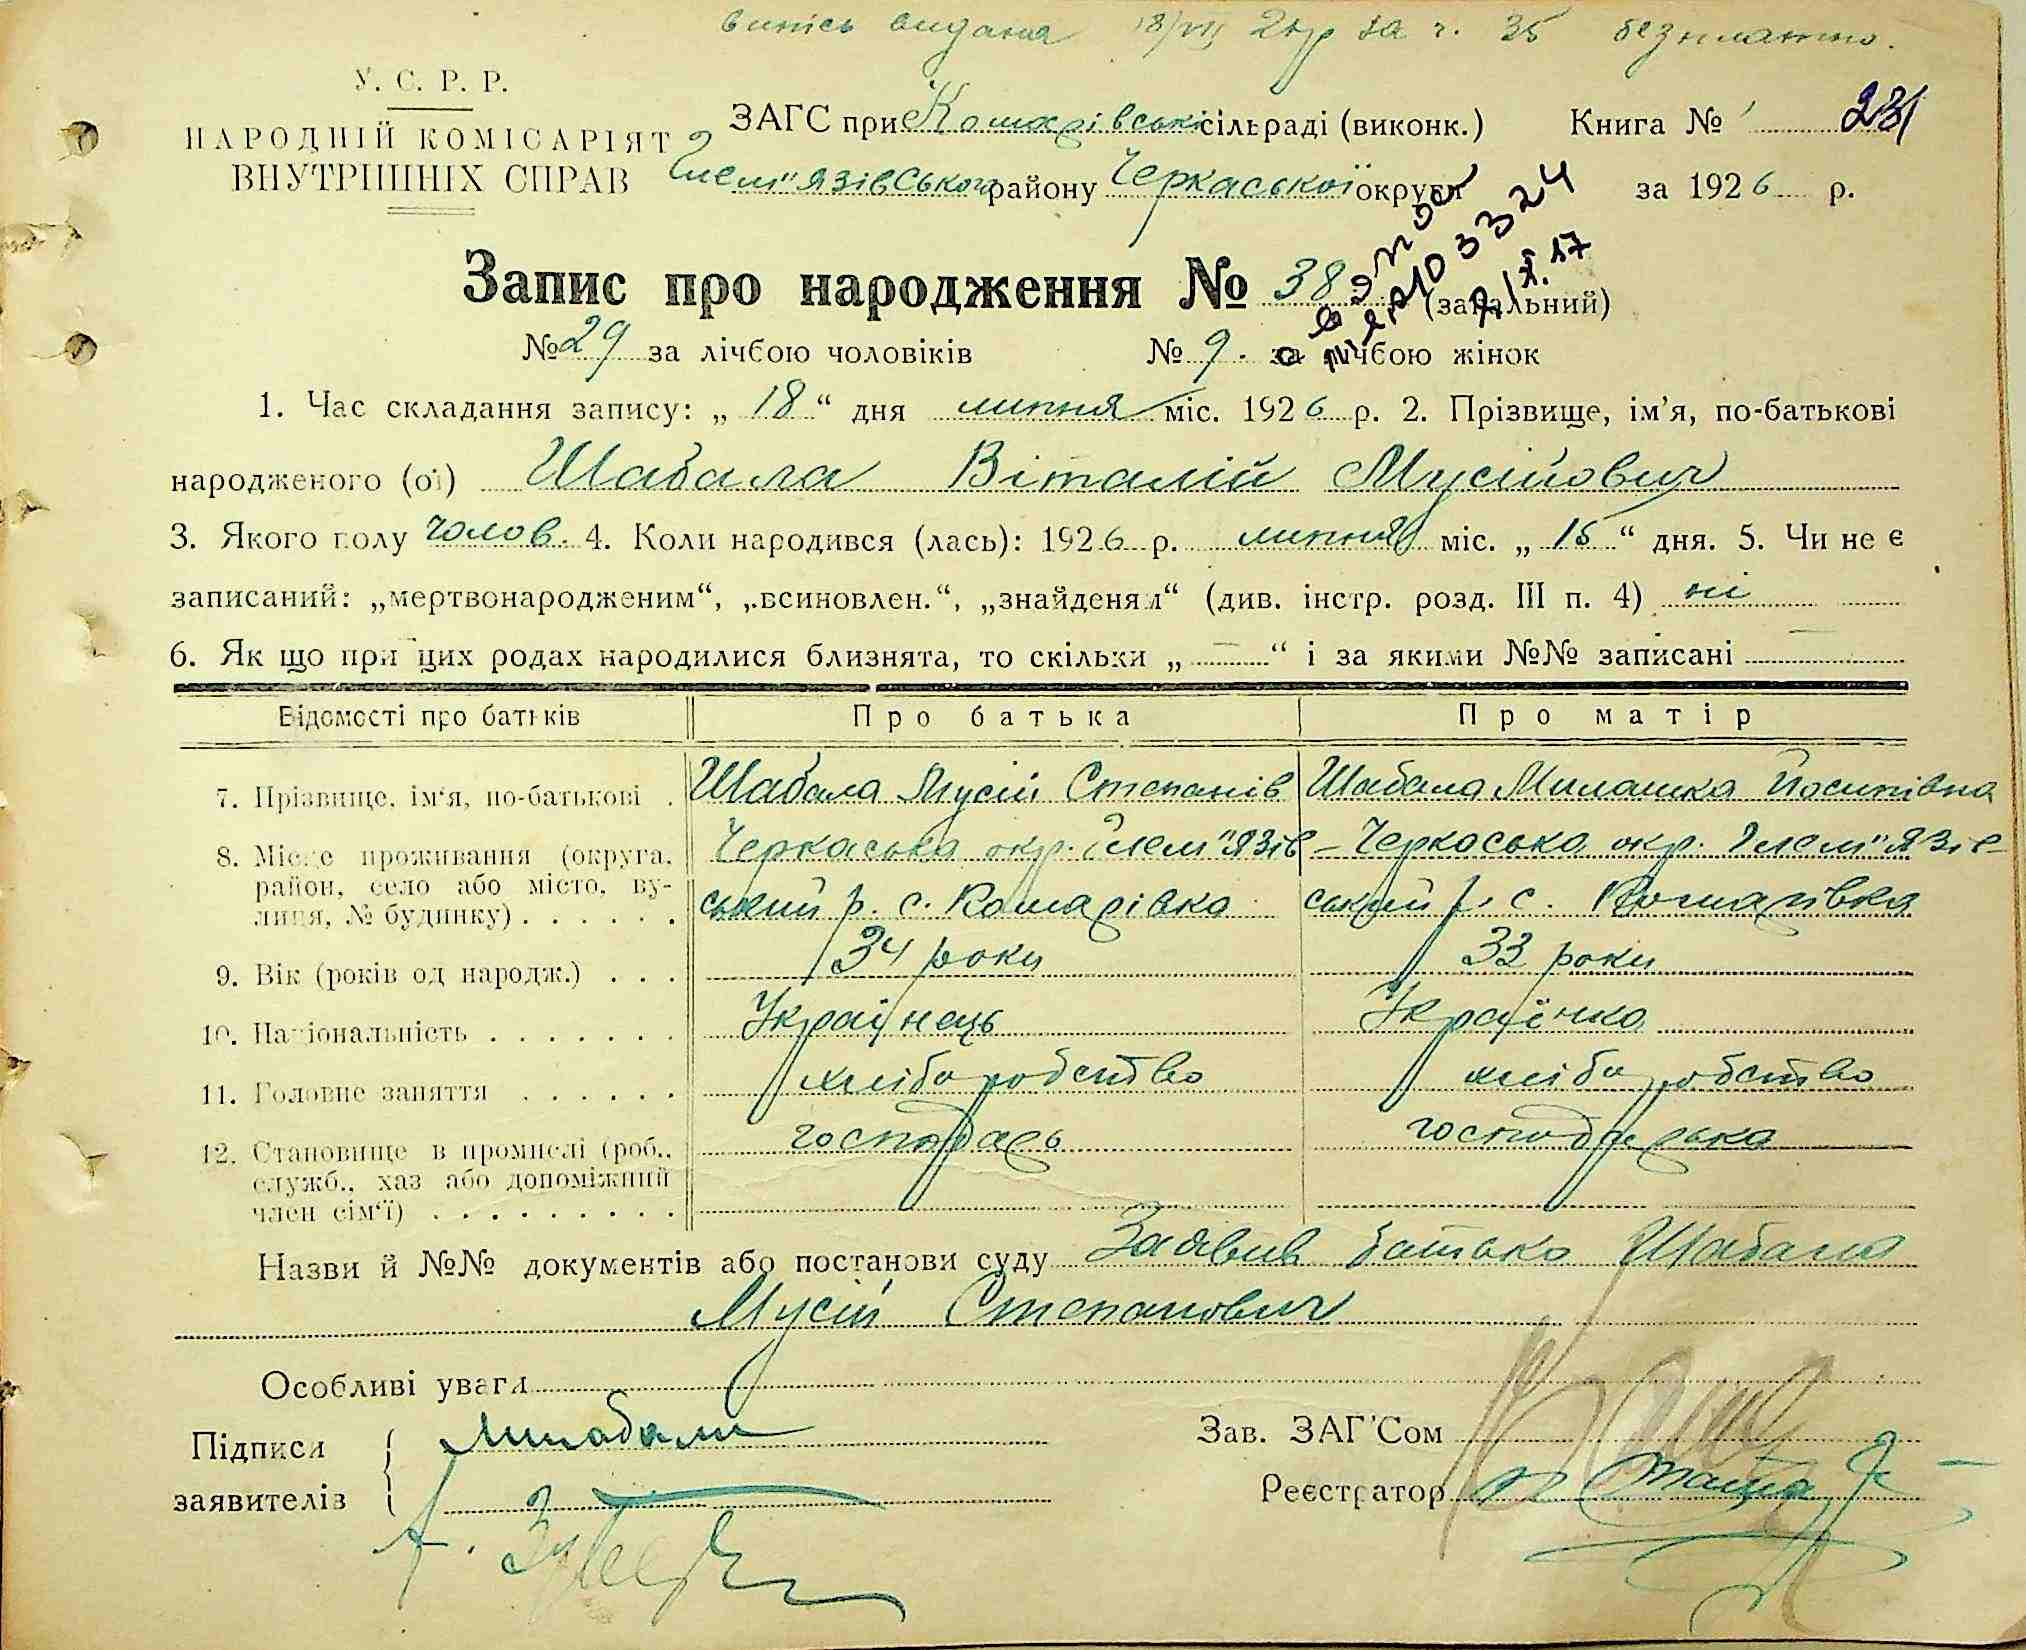 випись видана 18/VII 26р за ч. 35 безплатно.
У. С. Р. Р.
НАРОДНІЙ КОМІСАРІЯТ
ВНУТРІШНІХ СПРАВ
ЗАГС при Комарівській сільраді (виконк.) Книга № 1 231
Гельм"язівського району Черкаської округи за 1926 р.
Запис про народження № 38 (загальний)
103324
№ 29 за лічбою чоловіків № 9. за лічбою жінок
1. Час складання запису: „ 18 “ дня липня міс. 1926 р. 2. Прізвище, ім’я, по-батькові
народженого (ої) Шабала Віталій Мусійович
3. Якого полу чолов. 4. Коли народився (лась): 1926 р. липня міс. „ 15 “ дня. 5. Чи не є
записаний: „мертвонародженим“, „всиновлен.“, „знайденям“ (див. інстр. розд. III п. 4) ні
6. Як що при цих родах народилися близнята, то скільки „ — “ і за якими №№ записані —
Відомості про батьків Про батька Про матір
7. Прізвище, ім‘я, по-батькові . Шабала Мусій Степанів Шабала Милашка Йосипівна
8. Місце проживання (округа, район, село або місто, вулиця, № будинку) . . . . . .
Черкаська окр. Гельм"язівський р. с. Комарівка
Черкаська окр. Гельм"язівський р. с. Комарівка
9. Вік (років од народж.) . . . 34 роки 33 роки
10. Національність . . . . . . . Українець Українка
11. Головне заняття . . . . . . хліборобство хліборобство
12. Становище в промислі (роб., служб., хаз або допоміжний член сім‘ї) . . . . . . . . .
господарь господарька
Назви й №№ документів або постанови суду Заявив батько Шабала
Мусій Степанович
Особливі уваги
Підписи заявителів
Зав. ЗАГС'ом
Реєстратор